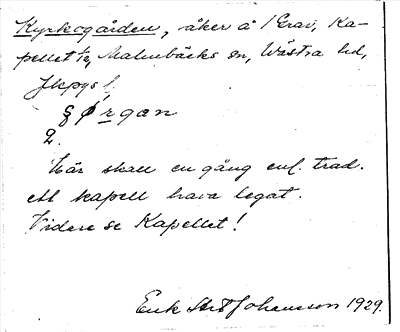 Kyrkogården, åker å 1 Grav, Ka-
pellet 1/2, Malmbäcks sn, Västra hd,
Jkpgs l.
2.
Här skall en gång enl. trad.
ett kapell hava legat.
Vidare se Kapellet!
Erik Johansson 1929.